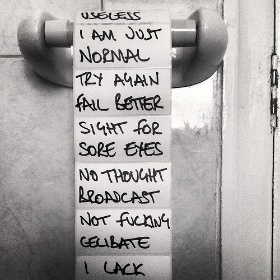 USELESS
I AM JUST
NORMAL
TRY AGAIN
FAIL BETTER
SIGHT FOR
SORE EYES
NO THOUGHT
BROADCAST
NOT FUCKING
CELIBATE
I LACK